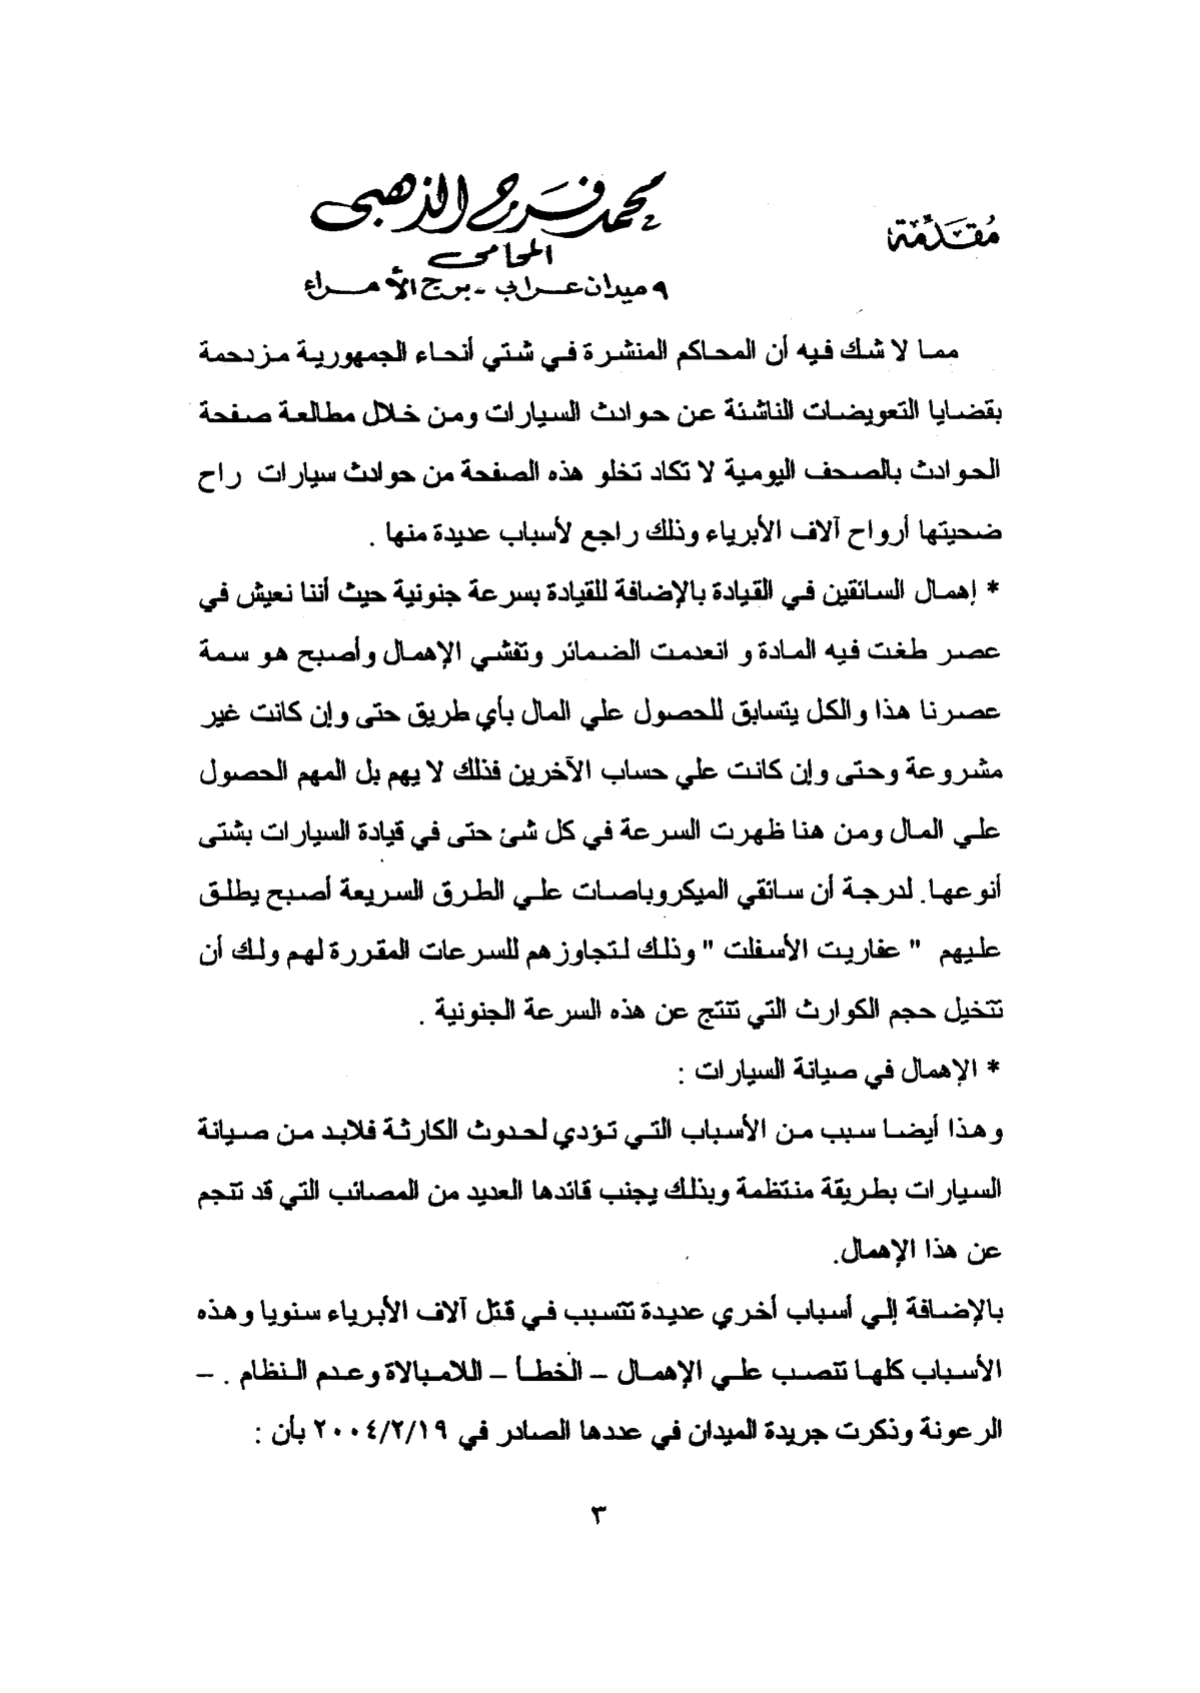 مُقَدِّمة
محمد فرج الذهبى
المحامى
٩ ميدان عرابي - برج الأمراء
مما لا شك فيه أن المحاكم المنشرة في شتي أنحاء الجمهورية مزدحمة
بقضايا التعويضات الناشئة عن حوادث السيارات ومن خلال مطالعة صفحة
الحوادث بالصحف اليومية لا تكاد تخلو هذه الصفحة من حوادث سيارات راح
ضحيتها أرواح آلاف الأبرياء وذلك راجع لأسباب عديدة منها .
* إهمال السائقين في القيادة بالإضافة للقيادة بسرعة جنونية حيث أننا نعيش في
عصر طغت فيه المادة و انعدمت الضمائر وتفشي الإهمال وأصبح هو سمة
عصرنا هذا والكل يتسابق للحصول علي المال بأي طريق حتى وإن كانت غير
مشروعة وحتى وإن كانت علي حساب الآخرين فذلك لا يهم بل المهم الحصول
علي المال ومن هنا ظهرت السرعة في كل شئ حتى في قيادة السيارات بشتى
أنوعها. لدرجة أن سائقي الميكروباصات علي الطرق السريعة أصبح يطلق
عليهم " عفاريت الأسفلت " وذلك لتجاوزهم للسرعات المقررة لهم ولك أن
تتخيل حجم الكوارث التي تنتج عن هذه السرعة الجنونية .
* الإهمال في صيانة السيارات :
وهذا أيضا سبب من الأسباب التي تؤدي لحدوث الكارثة فلابد من صيانة
السيارات بطريقة منتظمة وبذلك يجنب قائدها العديد من المصائب التي قد تنجم
عن هذا الإهمال.
بالإضافة إلي أسباب أخري عديدة تتسبب في قتل آلاف الأبرياء سنويا وهذه
الأسباب كلها تنصب علي الإهمال – الخطأ – اللامبالاة وعدم النظام . –
الرعونة وذكرت جريدة الميدان في عددها الصادر في ٢٠٠٤/٢/١٩ بأن :
٣